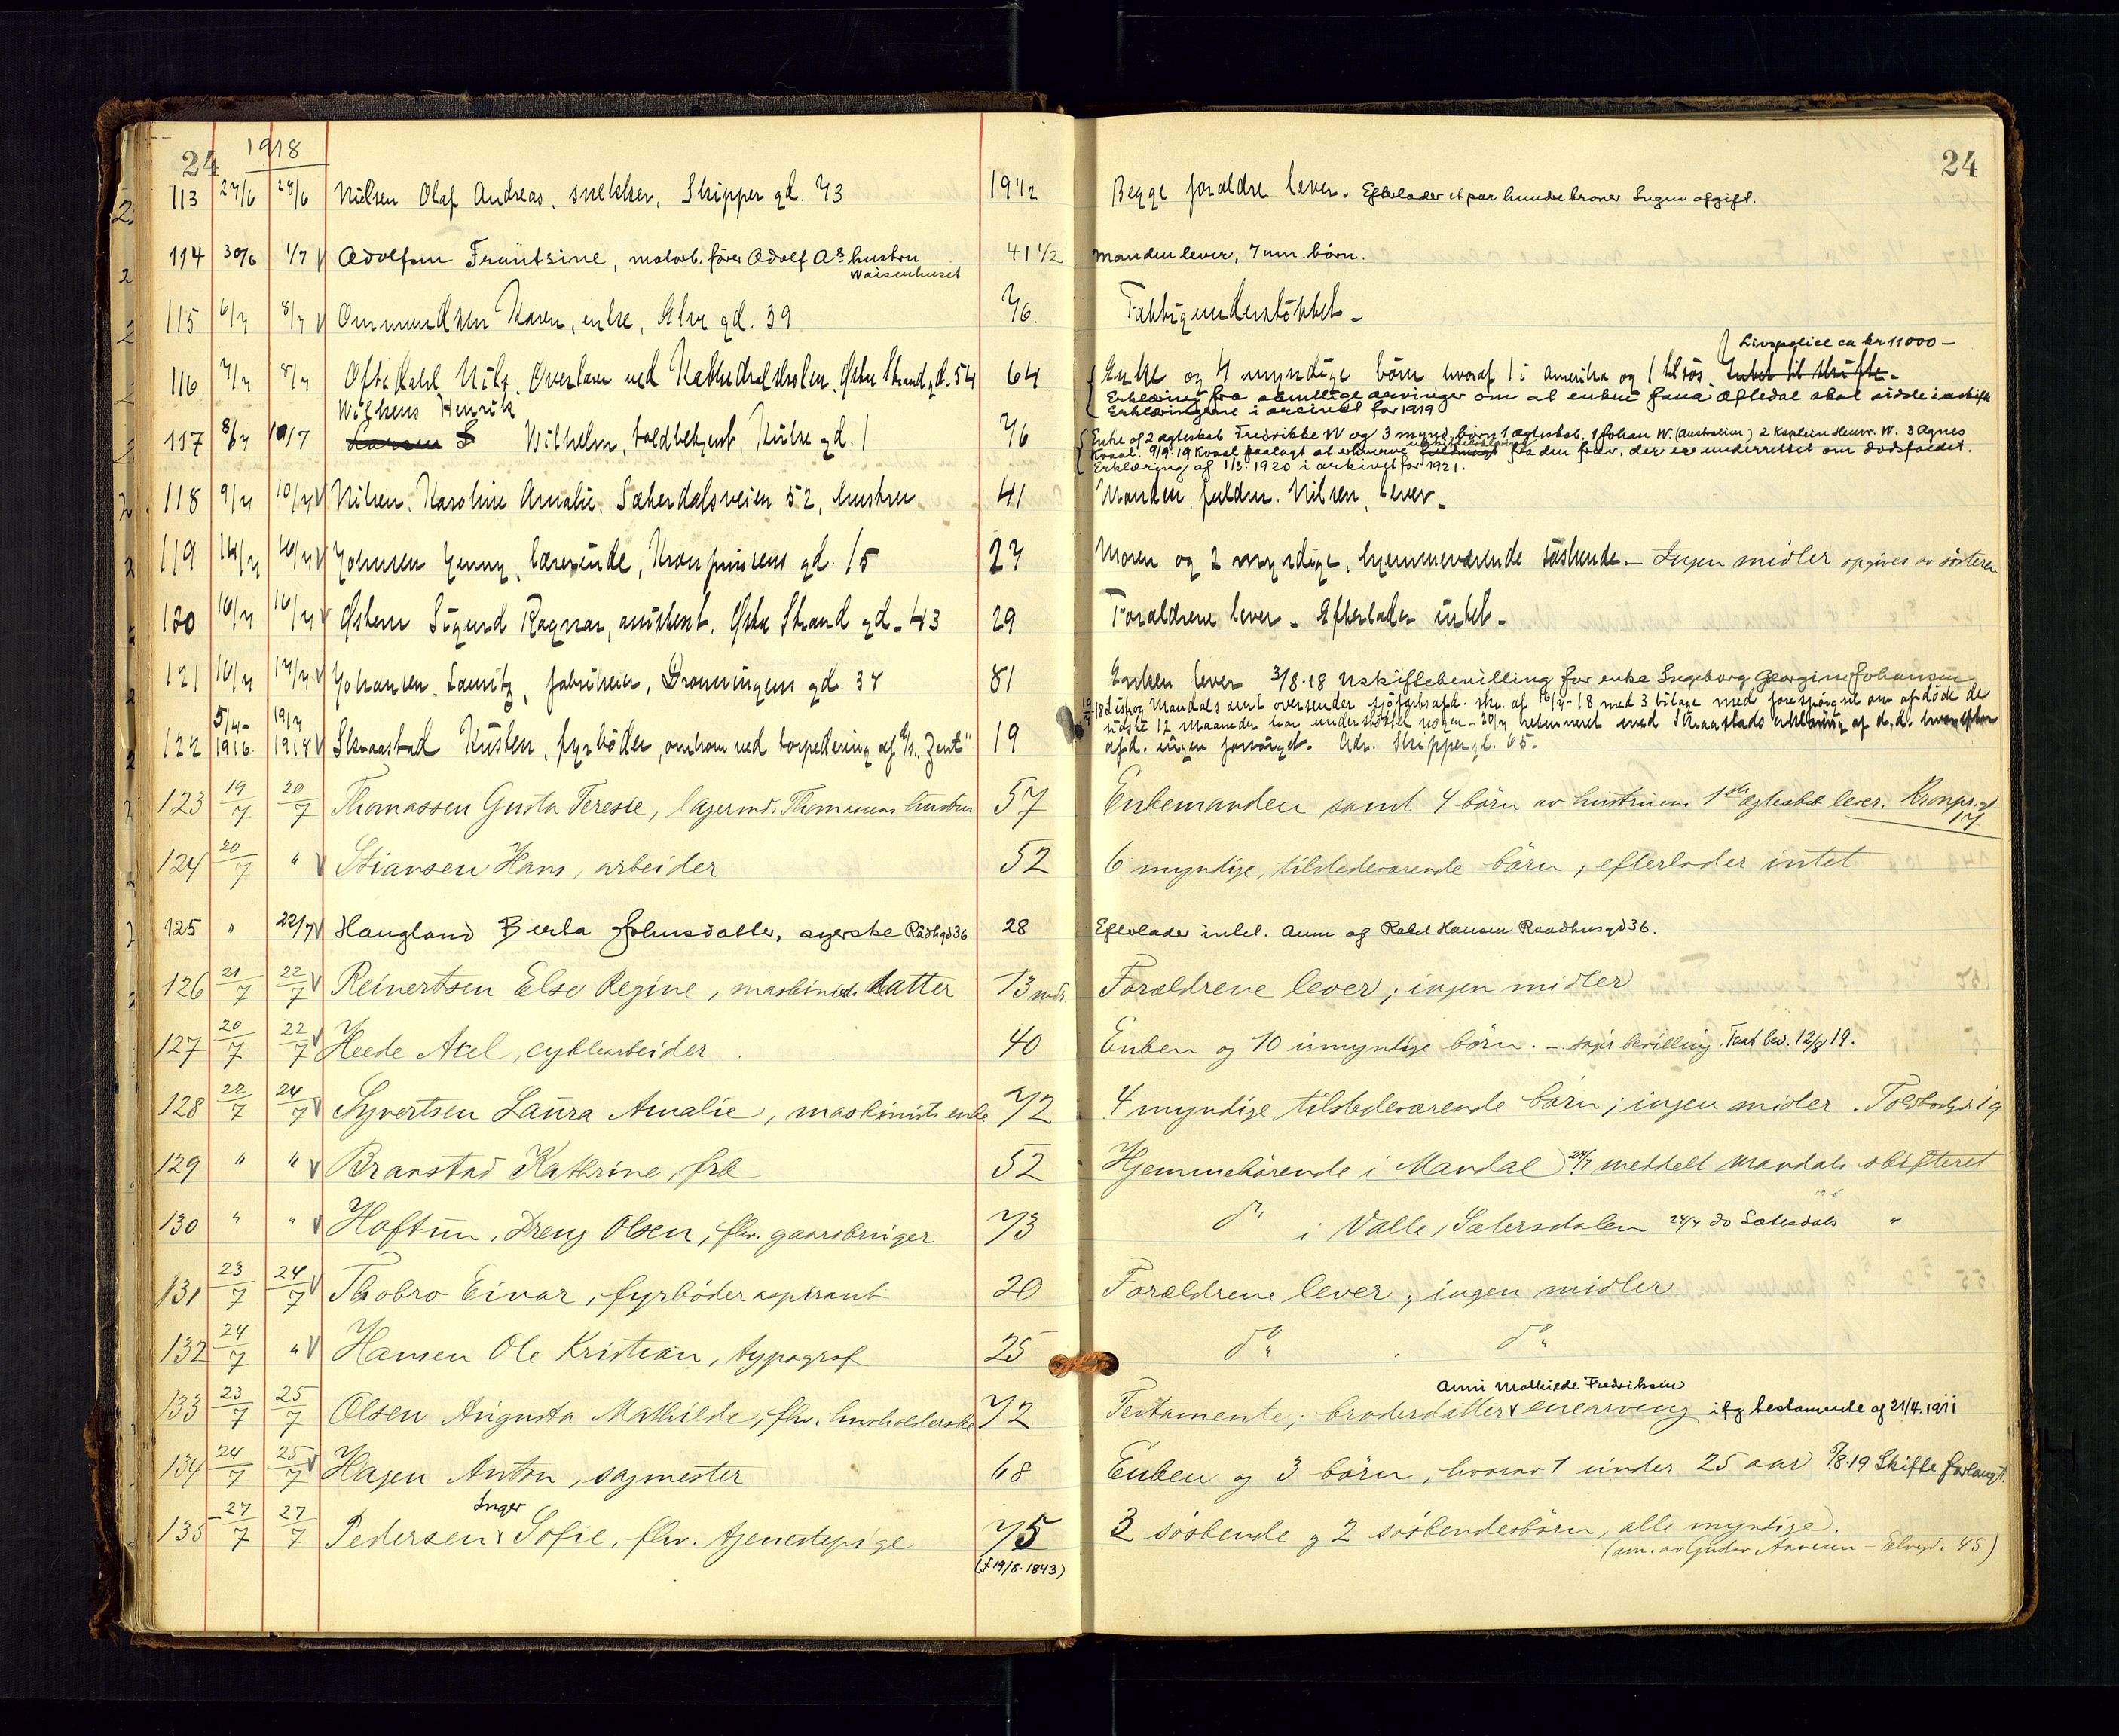 24 1918
113 27/6 28/6 Nielsen Olaf Andreas, snekker, Skipper gd. 73 19 1/2 Begge forældre lever. Efterlader et par hundre kroner Ingen afgift.
114 30/6 1/7 Adolfsen Fruntsine, motorb. fører Adolf A's hustru 41 1/2 Manden lever, 7 um. børn.
Waisenhuset
115 6/7 8/7 Ommundsen Karen, enke, Elve gd. 39 76. Fattigunderstøttet.
Livspolice ca kr 11000 —
116 7/7 8/7 Oftedahl Nils, Overlærer ved Kathedralskolen, Østre Strand gd. 54 64 Enke og 4 myndige børn hvoraf 1 i Amerika og 1 tilsjøs. Intet til skifte.
Erklæring fra samtlige arvinger om at enken fana Oftedal skal sidde i uskifte
Erklæringene i arcivet for 1919
Wilhsens Henrik
117 8/7 10/7 Larsen Wilhelm, toldbetjent, Kirke gd. 1 76 Enke af 2 ægteskab Fredrikke W og 3 mynd. børn 1 ægteskab. 1 Johan W. (Australien) 2 Kaptein Henr. W. 3 Agnes
Kvaal. 9/9.19 Kvaal paalagt at erhverve fuldmagt fra den frav. der er underrettet om dødsfaldet.
Erklæring af 1/3. 1920 i arkivet for 1921.
118 9/7 10/7 Nilsen, Karoline Amalie, Sæterdalsveien 52, hustru 41 Manden, fuldm. Nilsen, lever.
119 14/7 16/7 Johnsen Jenny, lærerinde, Kronprinsens gd. 15 27 Moren og 2 myndige, hjemmeværende søskende. — Ingen midler opgives av søsteren
120 16/7 16/7 Østern Sigurd Ragnar, assistent, Østre Strand gd. 43 29 Forældrene lever. Efterlader intet.
121 16/7 17/7 Johansen, Lauritz, fabrikeier, Dronningens gd. 37 81 Enken lever 3/8.18 Uskiftebevilling for enke Ingeborg Georgine Johansen
19/7 18 Lister og Mandals amt oversender sjøfartsafd. skr. af 16/7-18 med 3 bilage med forespørgsel om afdøde de
5/4- 1916. 19/7 1918 sidste 12 maaneder har understøttet nogen — 20/7 returneret med Skraastads erklæring af d.d. hvorefter
122 Skraastad Kristen, fyrbøder, omkom ved torpedering af S/S. "Zent" 19 afd. ingen forsørget. Adr. Skippergd. 65.
123 19/7 20/7 Thomassen Gusta Teresie, lagermd. Thomassens hustru 57 Enkemanden samt 4 børn av hustruens 1ste ægteskab lever. Kronpr.gd 17
124 20/7 " Stiansen Hans, arbeider 52 6 myndige, tilstedeværende børn, efterlader intet
125 " 22/7 Haugland Berta Johnsdatter, syerske Rådhgd 36 28 Efterlader intet. Anm af Rakel Hansen Raadhusgd 36.
126 21/7 22/7 Reinertsen Else Regine, maskinists datter 13 mdr. Forældrene lever; ingen midler
127 20/7 22/7 Heede Axel, cyklearbeider 40 Enken og 10 umyndige børn. — søger bevilling. Faat bev. 12/8 19.
128 22/7 24/7 Syvertsen Laura Amalie, maskinists enke 72 4 myndige tilstedeværende børn; ingen midler. Toldbodgd. 19
129 " " Branstad Kathrine, frk 52 Hjemmehørende i Mandal 24/7 meddelt Mandals skifteret
130 " " Hoftun, Dreng Olsen, fhv. gaardbruger 73 do i Valle, Sætersdalen 24/7 do Sætesdals "
131 23/7 24/7 Thobro Einar, fyrbøderaspirant 20 Forældrene lever; ingen midler
132 24/7 " Hansen Ole Kristian, typograf 25 do do
Anni Mathilde Fredriksen
133 23/7 25/7 Olsen Augusta Mathilde, fhv. husholderske 72 Testamente; broderdatter enearving ifg testamente af 21/4.1911
134 24/7 25/7 Hagen Anton, sagmester 68 Enken og 3 børn, hvorav 1 under 25 aar 7/8.19 Skifte forlangt.
Inger
135 27/7 27/7 Pedersen Sofie, fhv. tjenestepige 75 3 søskende og 2 søskendebørn, alle myndige.
(f 19/5.1843) (anm. av Gustav Aanesen — Elvegd. 45)
24